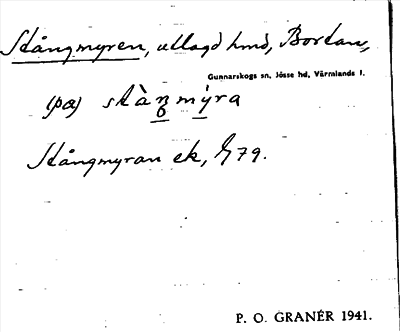 Stångmyren, utlagd hmd, Bortan,
Gunnarskogs sn, Jösse hd, Värmlands l.
(på) stàŋmýra
Stångmyran ek, G79.
P. O. GRANÉR 1941.